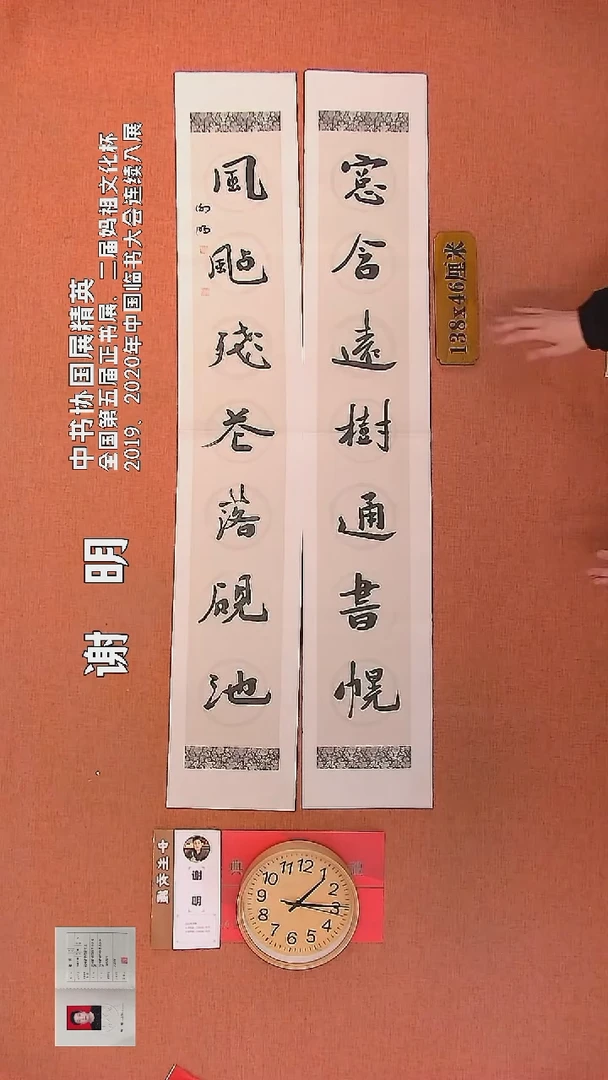 窓含遠樹通書幌
風颭殘花落硯池
谢明
138x46厘米
中书协国展精英
全国第五届正书展、二届妈祖文化杯
2019、2020年中国临书大会连续入展
谢 明
谢明
11 12 1
10 2
9 3
8 4
7 6 5